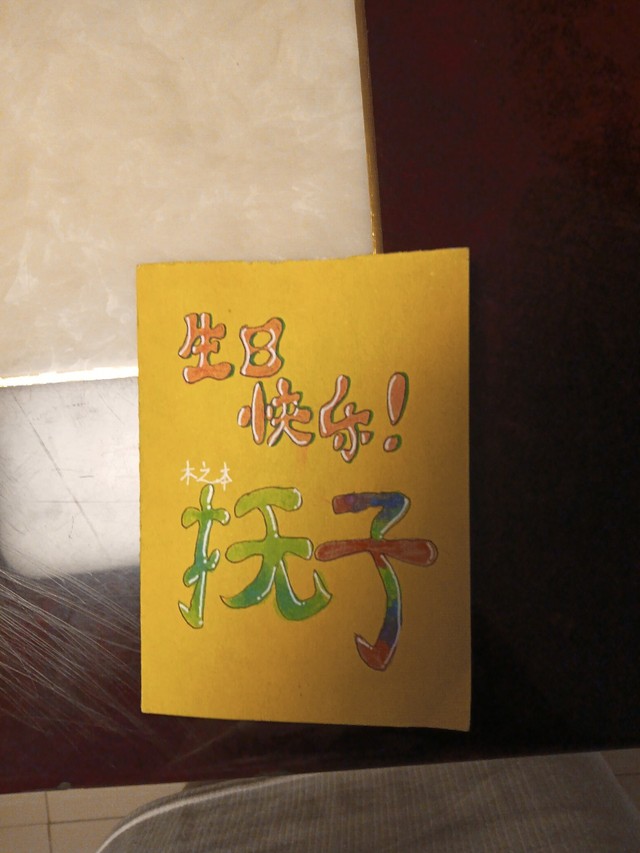 生日
快乐!
木之本
抚子